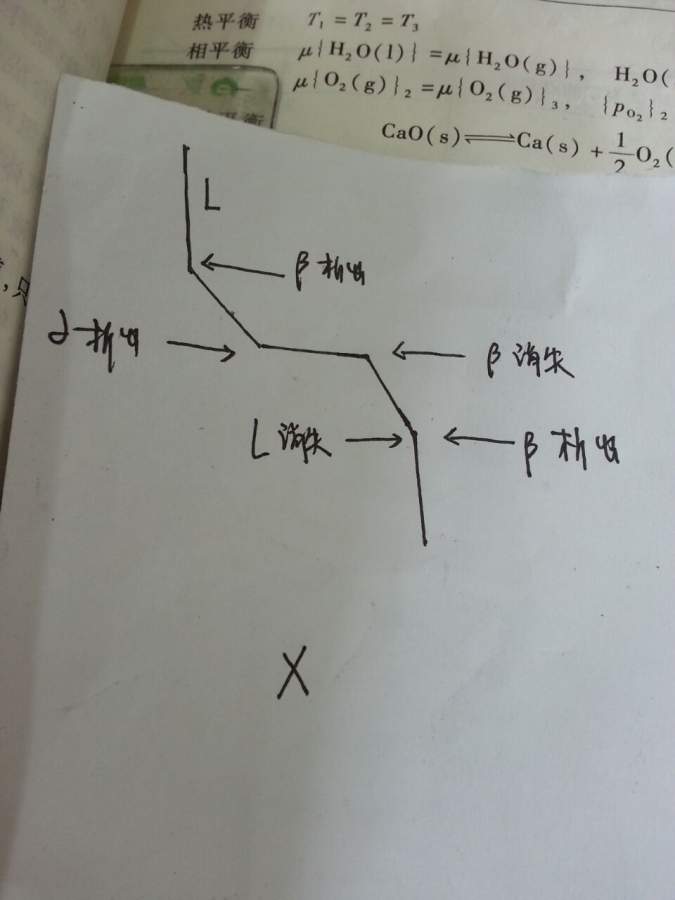 热平衡 T₁ = T₂ = T₃
相平衡 μ{H₂O(l)} = μ{H₂O(g)}, H₂O(
μ{O₂(g)}₂ = μ{O₂(g)}₃, {p_O₂}₂
平衡 CaO(s)⇌Ca(s) + 1/2 O₂(
L
β 析出
α 析出
β 消失
L 消失
β 析出
X